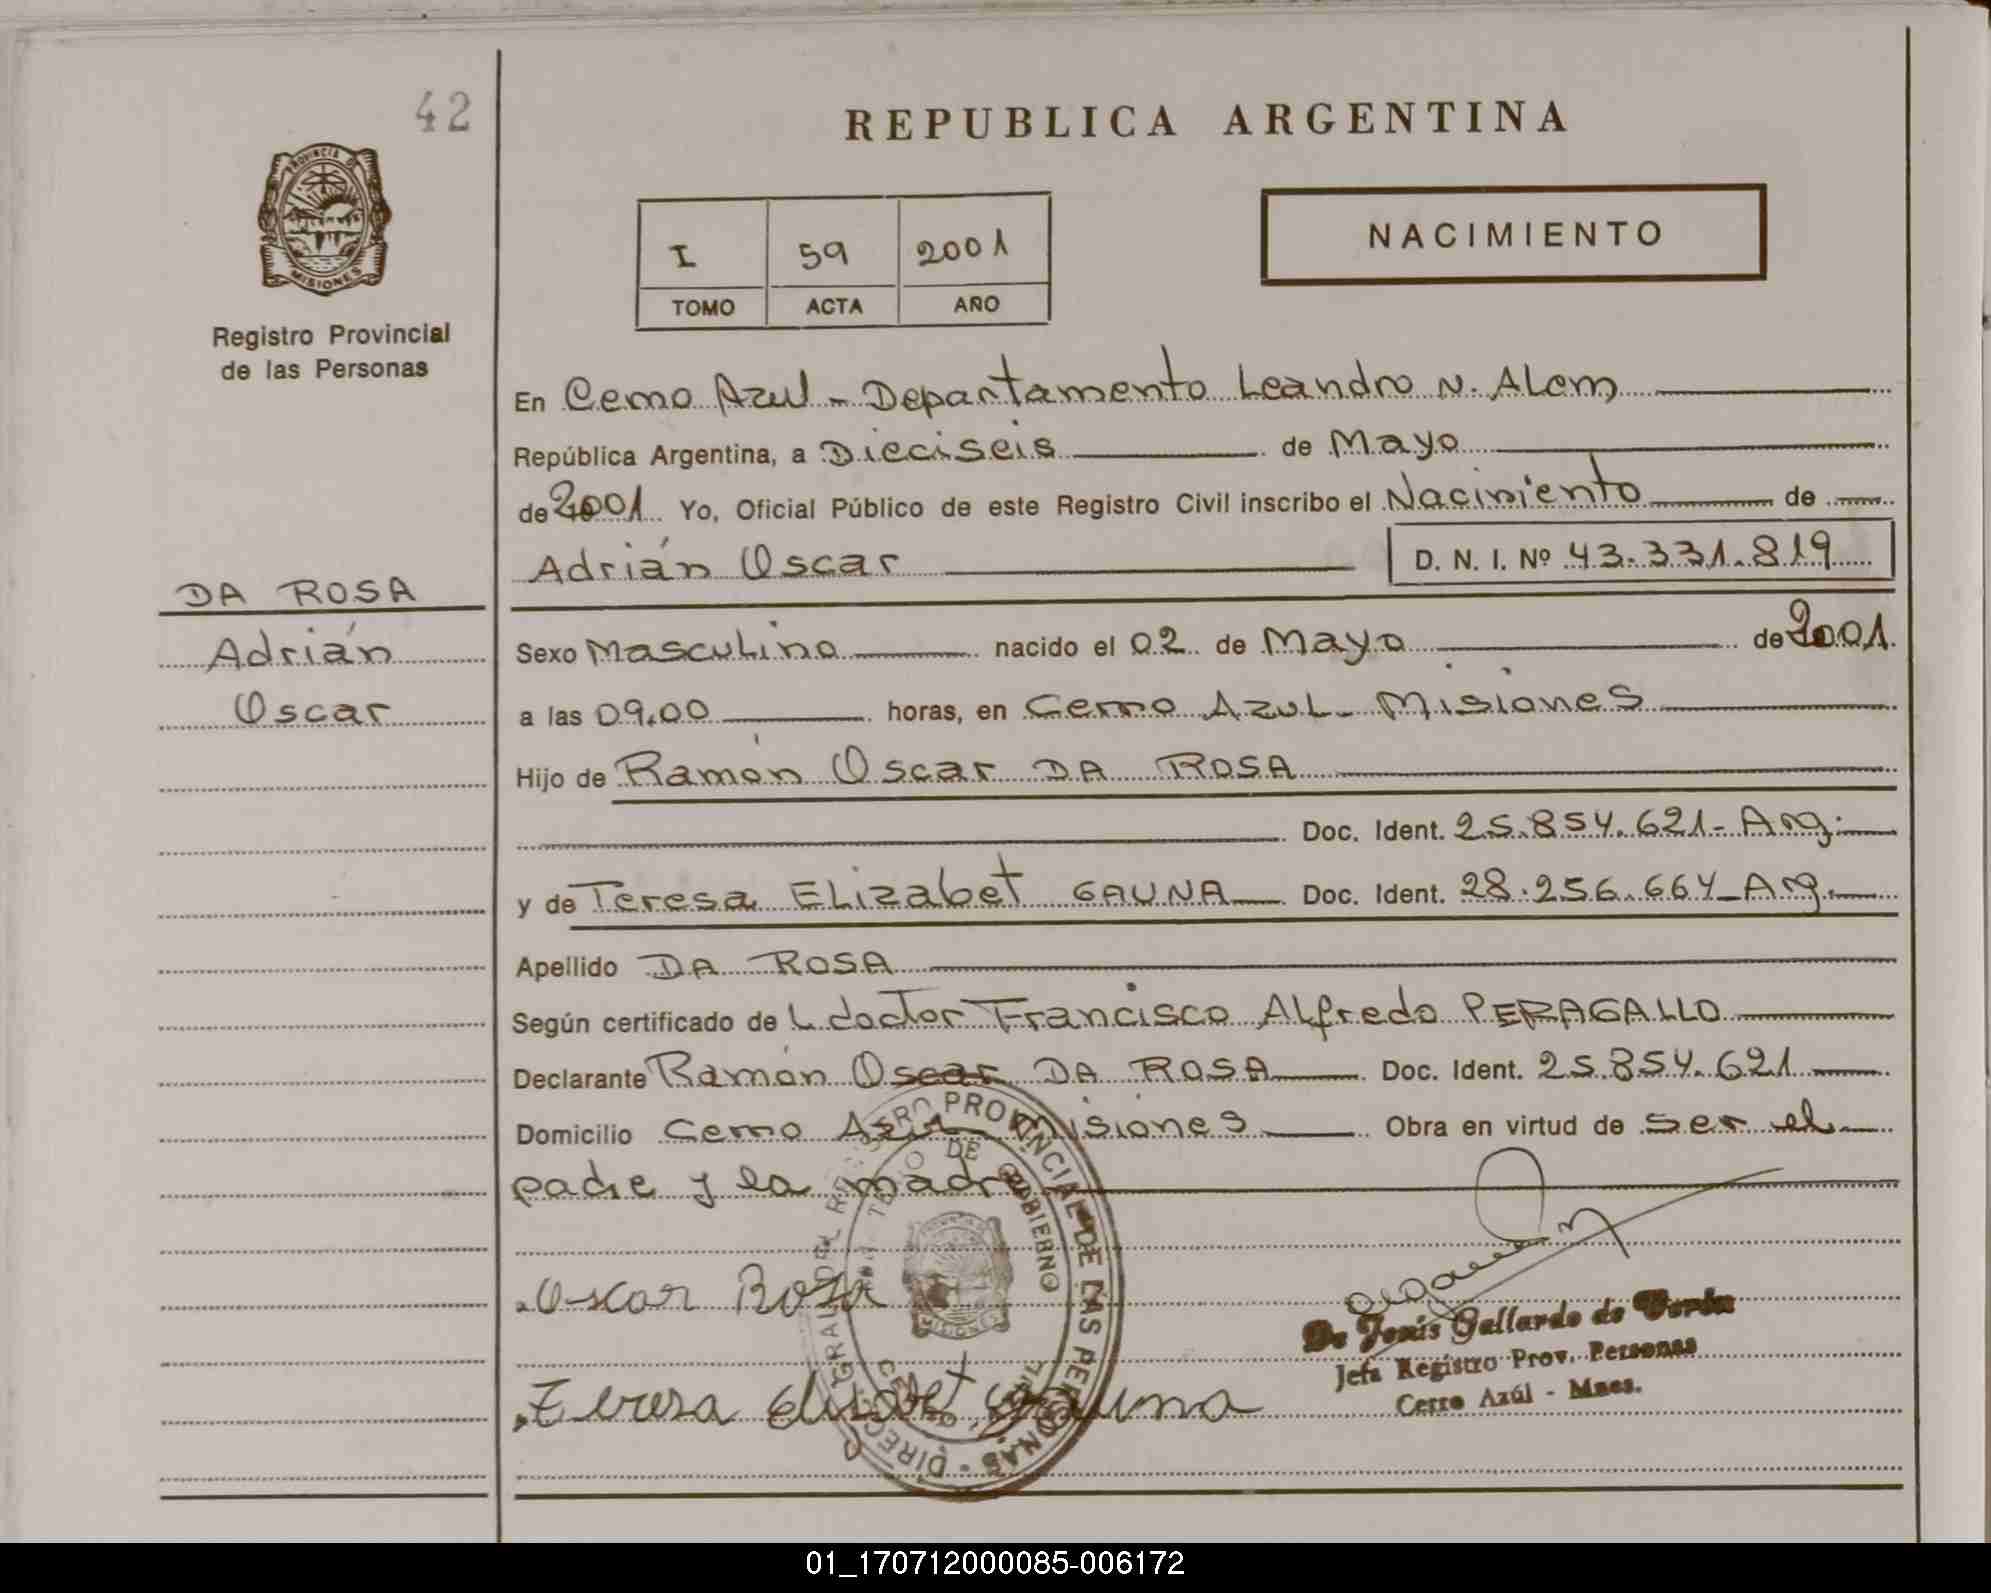 42
REPUBLICA ARGENTINA
PROVINCIA DE
MISIONES
Registro Provincial
de las Personas
I 59 2001
TOMO ACTA AÑO
NACIMIENTO
En Cerro Azul - Departamento Leandro N. Alem
República Argentina, a Dieciseis de Mayo
de 2001 Yo, Oficial Público de este Registro Civil inscribo el Nacimiento de
Adrián Oscar D. N. I. Nº 43.331.819
DA ROSA
Adrián
Oscar
Sexo Masculino nacido el 02 de Mayo de 2001
a las 09.00 horas, en Cerro Azul - Misiones
Hijo de Ramón Oscar DA ROSA
Doc. Ident. 25.854.621 - Arg.
y de Teresa Elizabet GAUNA Doc. Ident. 28.256.664 - Arg.
Apellido DA ROSA
Según certificado de L doctor Francisco Alfredo PERAGALLO
Declarante Ramón Oscar DA ROSA Doc. Ident. 25.854.621
Domicilio Cerro Azul Misiones Obra en virtud de ser el
padre y la madre
Oscar Rosa
Teresa Elisabet Gauna
DIREC. GRAL. DEL REGISTRO PROVINCIAL DE LAS PERSONAS
DE GOBIERNO
MISIONES
De Jesús Gallardo de Verón
Jefa Registro Prov. Personas
Cerro Azúl - Mnes.
01_170712000085-006172